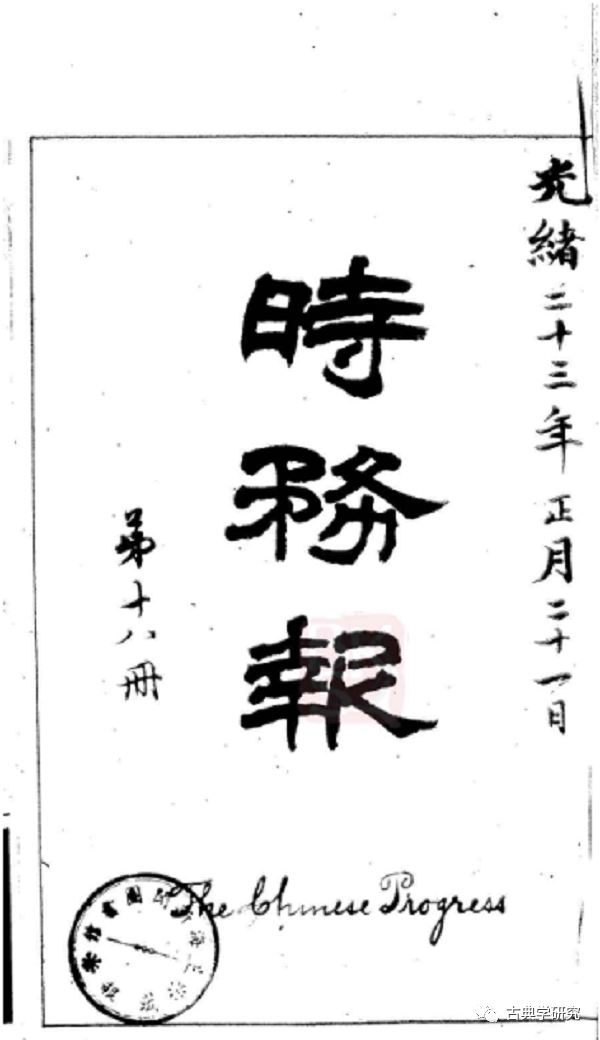 光緒二十三年正月二十一日
時務報
第十八冊
The Chinese Progress
古典学研究